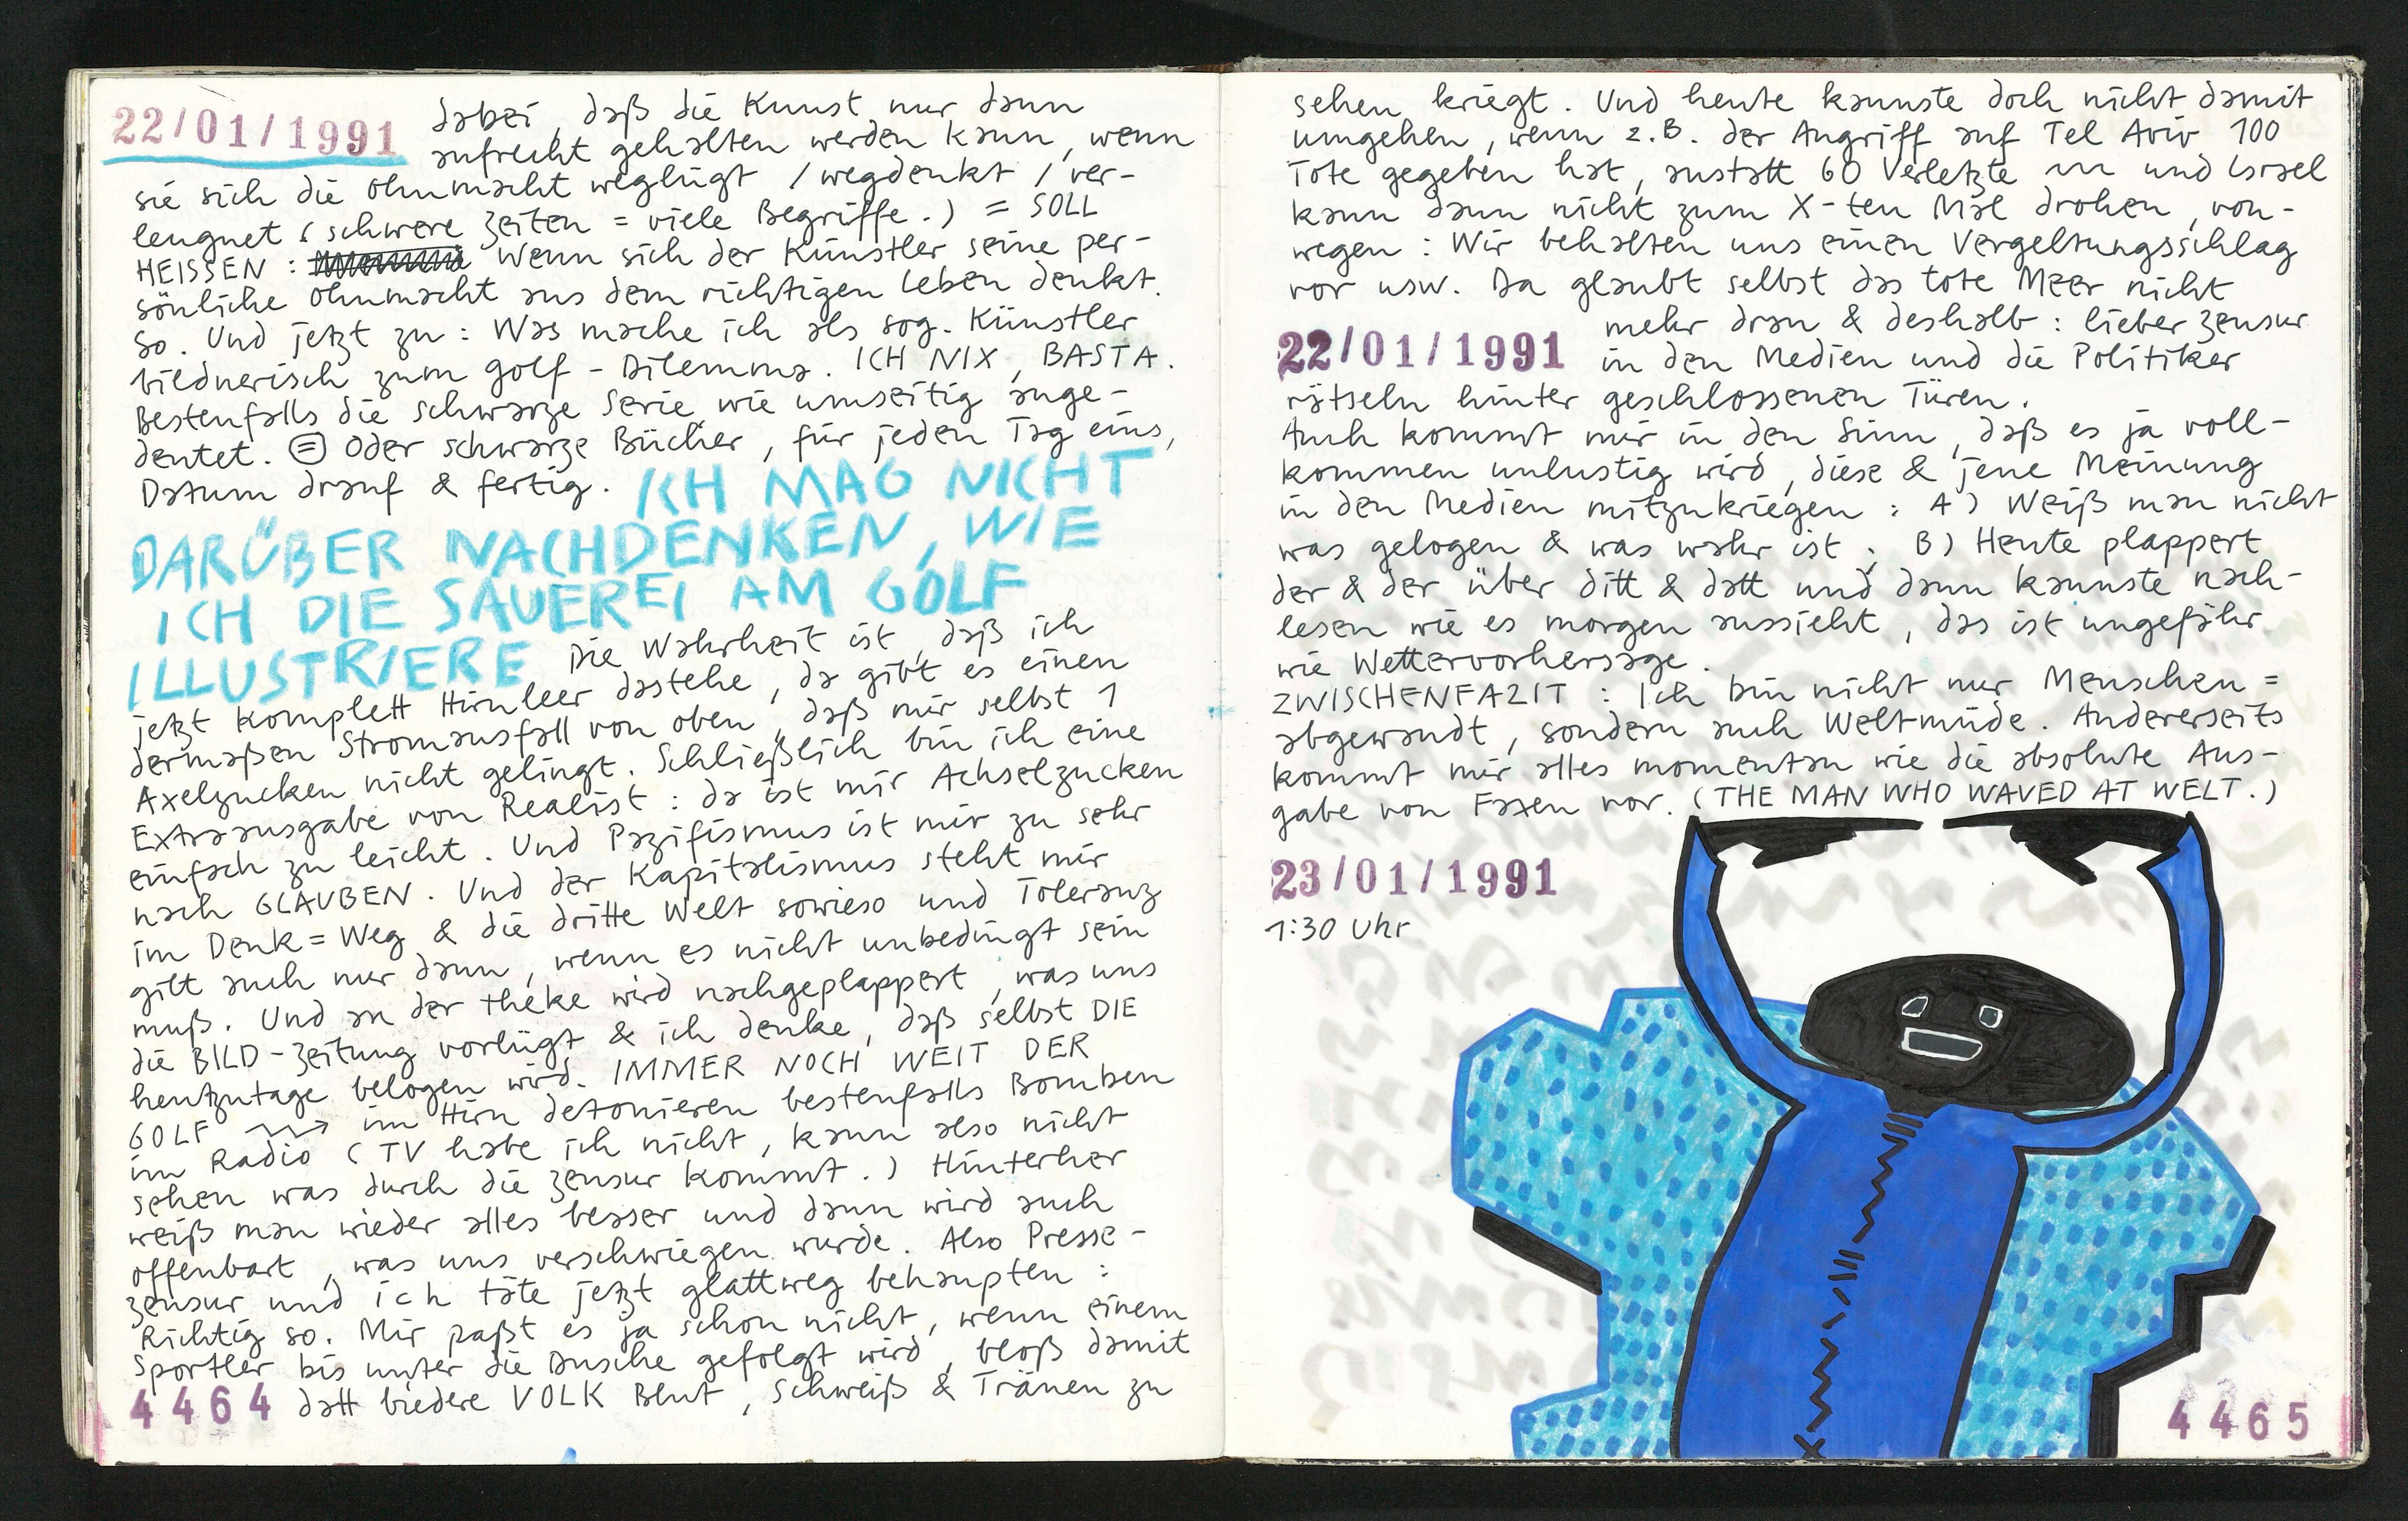 22/01/1991 dabei, daß die Kunst nur dann
aufrecht gehalten werden kann, wenn
sie sich die Ohnmacht weglügt / wegdenkt / ver-
leugnet (schwere Zeiten = viele Begriffe.) = SOLL
HEISSEN: Wenn sich der Künstler seine per-
sönliche Ohnmacht aus dem richtigen Leben denkt.
So. Und jetzt zu: Was mache ich als sog. Künstler
bildnerisch zum Golf-Dilemma. ICH NIX, BASTA.
Bestenfalls die schwarze Serie wie umseitig ange-
deutet. = Oder schwarze Bücher, für jeden Tag eins,
Datum drauf & fertig. ICH MAG NICHT
DARÜBER NACHDENKEN, WIE
ICH DIE SAUEREI AM GOLF
ILLUSTRIERE Die Wahrheit ist, daß ich
jetzt komplett Hirnleer dastehe, da gibt es einen
dermaßen Stromausfall von oben, daß mir selbst 1
Axelzucken nicht gelingt. Schließlich bin ich eine
Extraausgabe von Realist: da ist mir Achselzucken
einfach zu leicht. Und Pazifismus ist mir zu sehr
nach GLAUBEN. Und der Kapitalismus steht mir
im Denk=Weg & die dritte Welt sowieso und Toleranz
gilt auch nur dann, wenn es nicht unbedingt sein
muß. Und an der Theke wird nachgeplappert, was uns
die BILD-Zeitung vorlügt & ich denke, daß selbst DIE
heutzutage belogen wird. IMMER NOCH WEIT DER
GOLF im Hirn detonieren bestenfalls Bomben
im Radio (TV habe ich nicht, kann also nicht
sehen was durch die Zensur kommt.) Hinterher
weiß man wieder alles besser und dann wird auch
offenbart, was uns verschwiegen wurde. Also Presse-
zensur und ich täte jetzt glattweg behaupten:
Richtig so. Mir paßt es ja schon nicht, wenn einem
Sportler bis unter die Dusche gefolgt wird, bloß damit
4464 datt biedere VOLK Blut, Schweiß & Tränen zu
sehen kriegt. Und heute kannste doch nicht damit
umgehen, wenn z.B. der Angriff auf Tel Aviv 100
Tote gegeben hat, anstatt 60 Verletzte und Israel
kann dann nicht zum X-ten Mal drohen, von-
wegen: Wir behalten uns einen Vergeltungsschlag
vor usw. Da glaubt selbst das tote Meer nicht
mehr dran & deshalb: lieber Zensur
22/01/1991 in den Medien und die Politiker
rätseln hinter geschlossenen Türen.
Auch kommt mir in den Sinn, daß es ja voll-
kommen unlustig wird, diese & jene Meinung
in den Medien mitzukriegen: A) Weiß man nicht
was gelogen & was wahr ist; B) Heute plappert
der & der über ditt & datt und dann kannste nach-
lesen wie es morgen aussieht, das ist ungefähr
wie Wettervorhersage.
ZWISCHENFAZIT: Ich bin nicht nur Menschen=
abgewandt, sondern auch Weltmüde. Andererseits
kommt mir alles momentan wie die absolute Aus-
gabe von Faxen vor. (THE MAN WHO WAVED AT WELT.)
23/01/1991
1:30 Uhr
4465